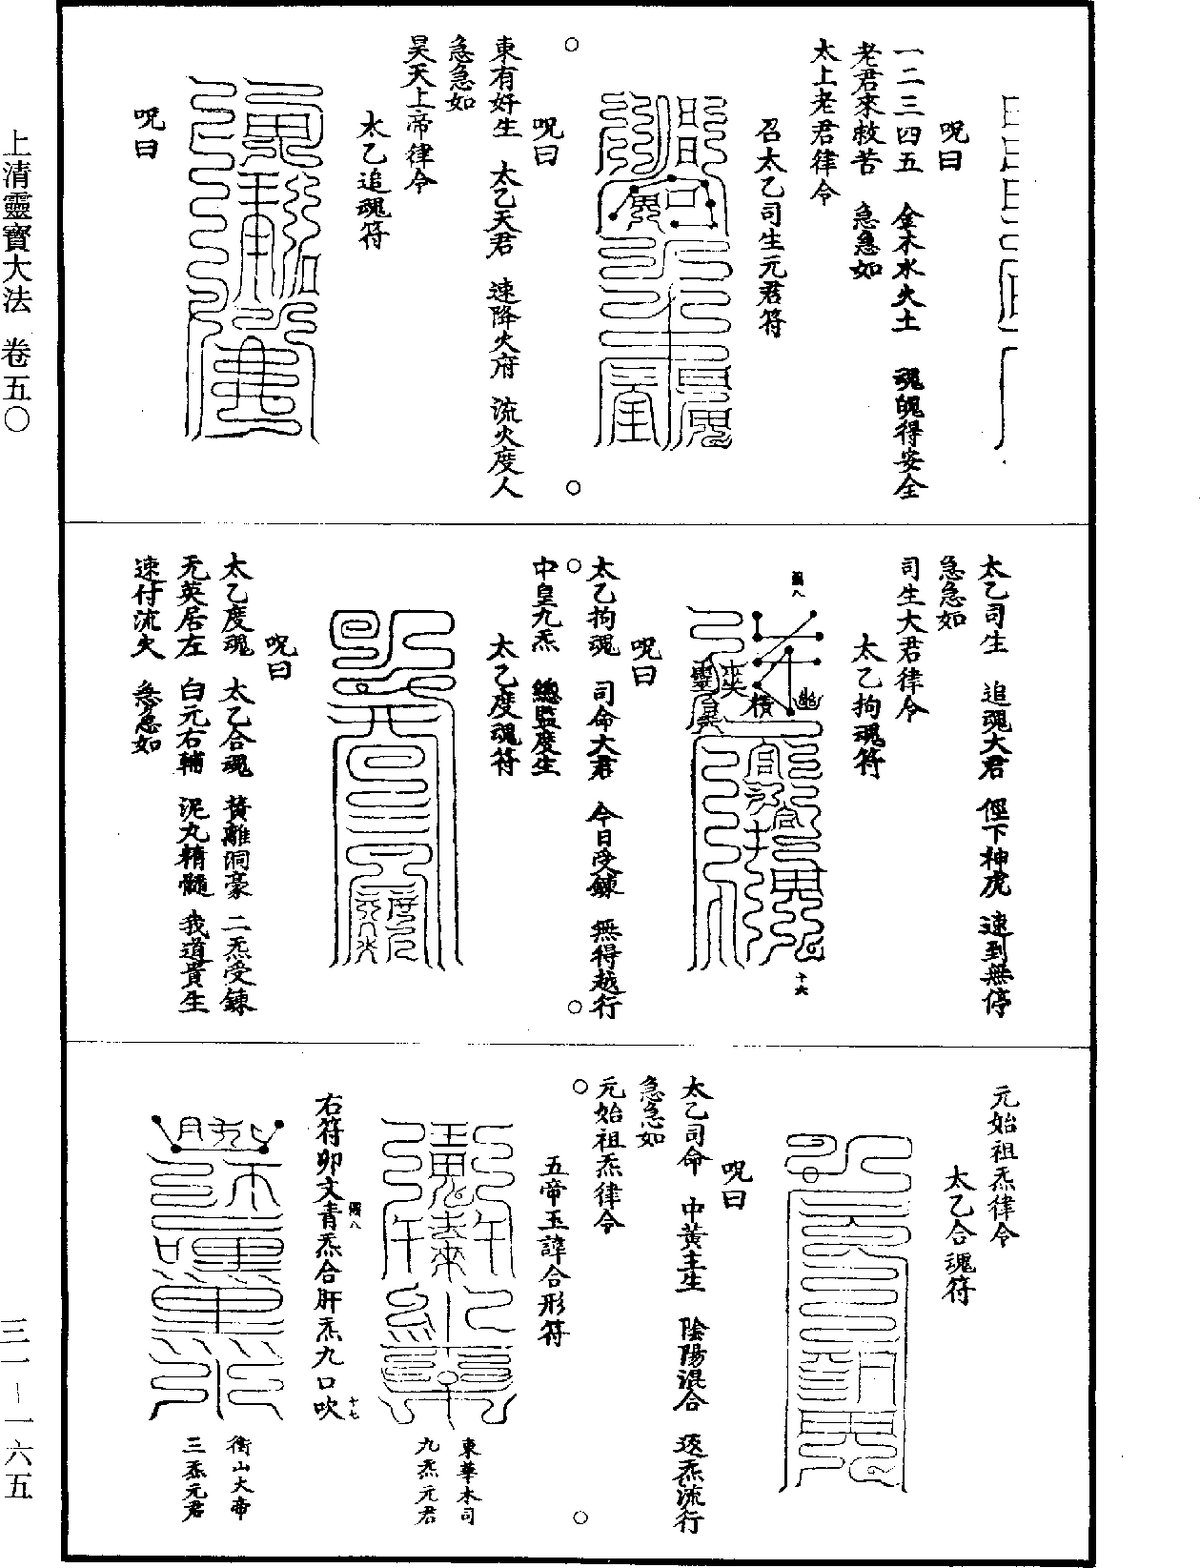 呪曰
一二三四五　金木水火土　魂魄得安全
老君來救苦　急急如
太上老君律令
召太乙司生元君符
呪曰
東有好生　太乙天君　速降火府　流火度人
急急如
昊天上帝律令
太乙追魂符
呪曰
太乙司生　追魂大君　徑下神虎　速到無停
急急如
司生大君律令
太乙拘魂符
呪曰
太乙拘魂　司命大君　今日受鍊　無得越行
中皇九炁　總監度生
太乙度魂符
呪曰
太乙度魂　太乙合魂　黃離洞豪　二炁受鍊
无英居左　白元右輔　泥丸精髓　我道貴生
速付流火　急急如
元始祖炁律令
太乙合魂符
呪曰
太乙司命　中黃主生　陰陽混合　返炁流行
急急如
元始祖炁律令
五帝玉諱合形符
東華木司
九炁元君
右符卯文青炁合肝炁九口吹
衡山大帝
三炁元君
上清靈寶大法　卷五〇
三一－一六五